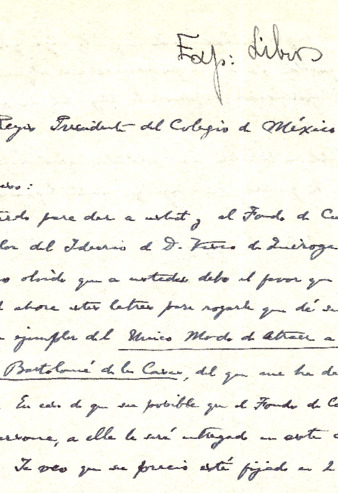 Exp: Libros
Reyes Presidente del Colegio de México
para dar a usted y al Fondo de Cu
del Ideario de D. Vasco de Quiroga
olvido que a ustedes debo el favor que
ahora estas letras para rogarle que dé su
ejemplar del Unico Modo de Atraer a
Bartolomé de las Casas, del que me ha de
En caso de que sea posible que el Fondo de Cu
persona, a ella le será entregado en este
Ya veo que su precio está fijado en 2